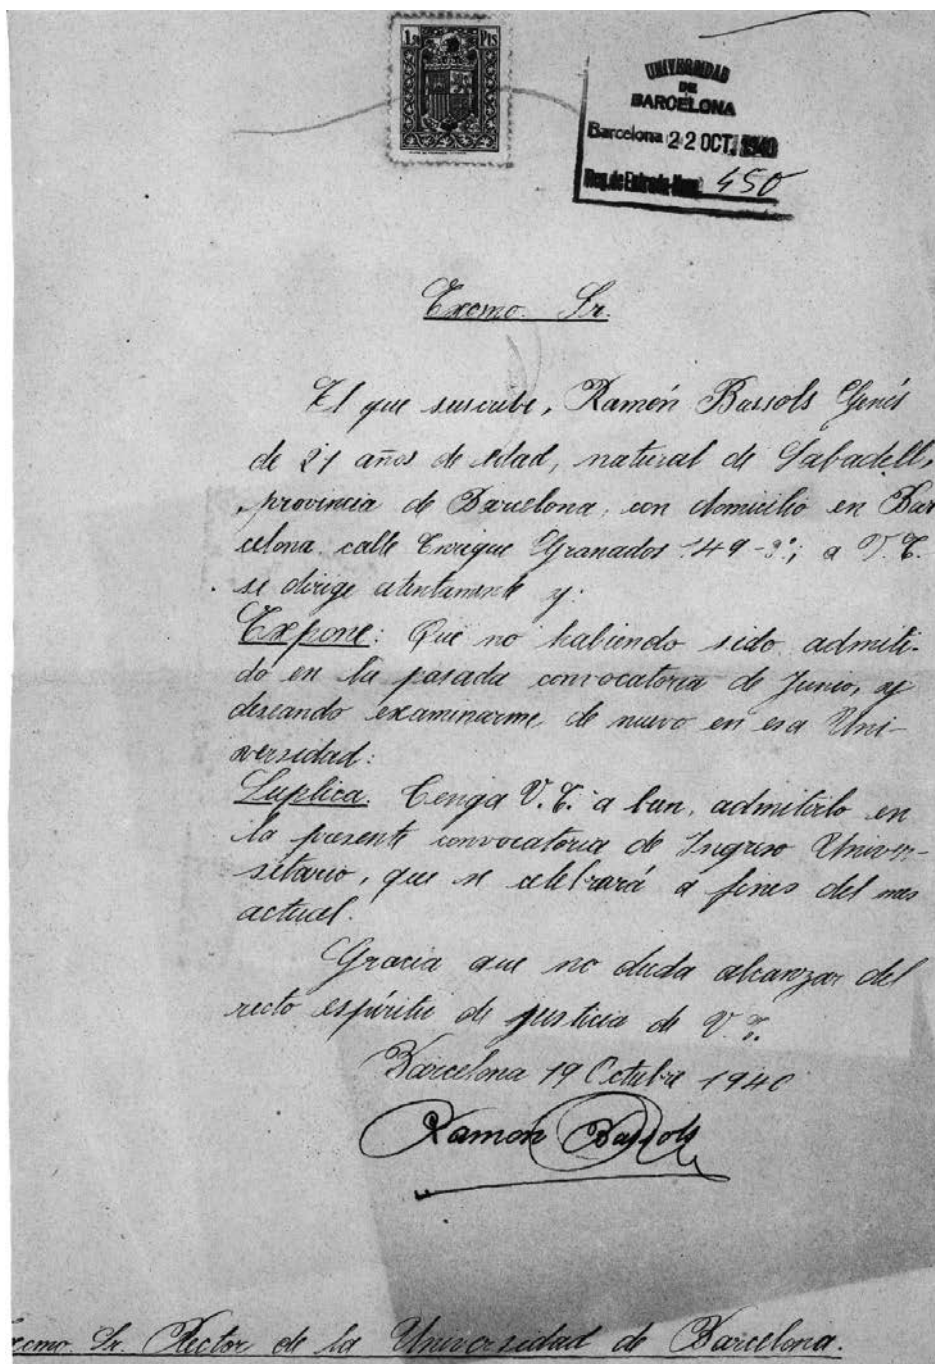 1 Pts
UNIVERSIDAD
DE
BARCELONA
Barcelona 22 OCT. 1940
Reg. de Entrada Núm. 450
Excmo. Sr.
El que suscribe, Ramón Bassols Genís
de 21 años de edad, natural de Sabadell,
provincia de Barcelona, con domicilio en Bar
celona calle Enrique Granados 149-3º; a V.E.
se dirige atentamente y:
Expone: Que no habiendo sido admiti-
do en la pasada convocatoria de Junio, y
deseando examinarme de nuevo en esa Uni-
versidad:
Suplica: Tenga V.E. a bien, admitirlo en
la presente convocatoria de Ingreso Univer-
sitario, que se celebrará a fines del mes
actual.
Gracia que no duda alcanzar del
recto espíritu de justicia de V.E.
Barcelona 19 Octubre 1940
Ramon Bassols
xcmo. Sr. Rector de la Universidad de Barcelona.